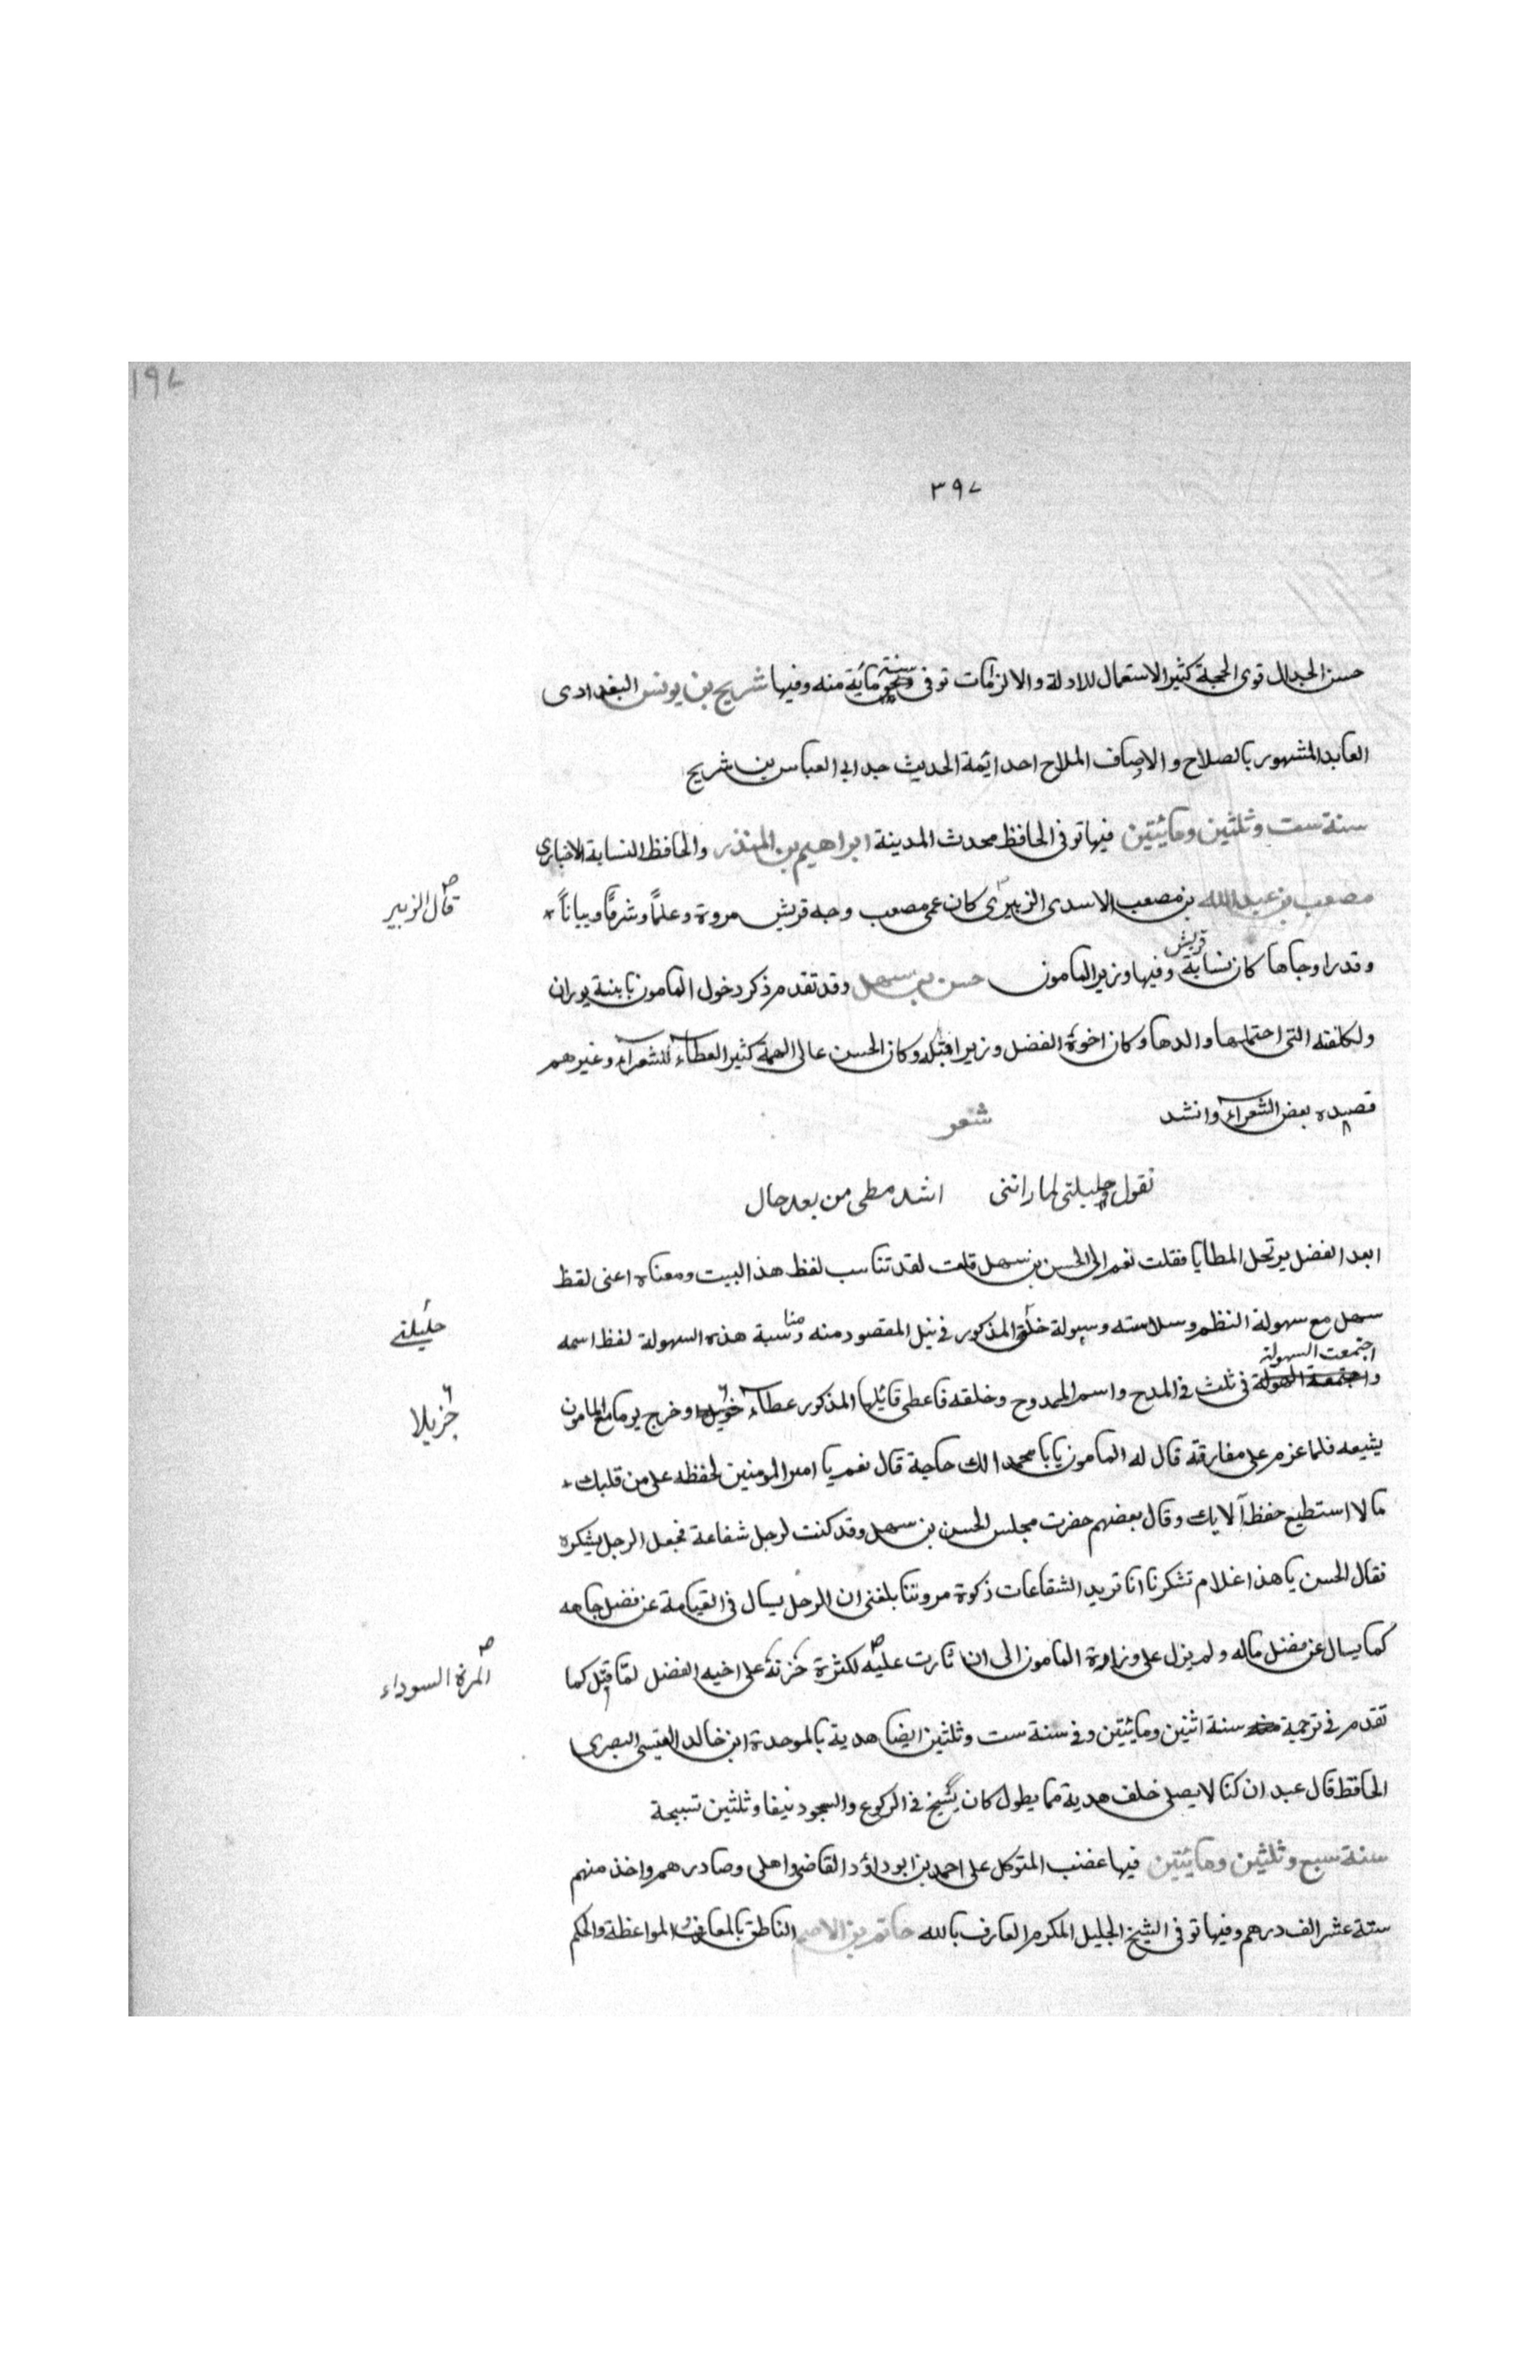 ١٩٧
٣٩٧
حسن الجدال قوى الحجة كثير الاستعمال للادلة والالزامات توفى سنة مائية منه وفيها شريح بن يونس البغدادى
العابد المشهور بالصلاح والاوصاف الملاح احد ائمة الحديث جد ابى العباس بن شريح
سنة ست وثلثين ومائيتين فيها توفى الحافظ محدث المدينة ابراهيم بن المنذر والحافظ النسابة الاخبارى
مصعب بن عبد الله بن مصعب الاسدى الزبيرى كان عمى مصعب وجه قريش مروة وعلمًا وشرفًا وبيانًا
قال الزبير
وقدرا وجاها كان نسابة قريش وفيها وزير المامون حسن بن سهل وقد تقدم ذكر دخول المامون بابنة بوران
ولكلفته التى احتملها والدها وكان اخوة الفضل وزيرا قبله وكان الحسن عالى الهمة كثير العطاء للشعراء وغيرهم
قصده بعض الشعراء وانشد شعر
تقول حليلتى لما راتنى اشد مطى من بعد حال
ابعد الفضل يرتحل المطايا فقلت نعم الى الحسن بن سهل قلت لقد تناسب لفظ هذا البيت ومعناه اعنى لفظ
سهل مع سهولة النظم وسلاسته وسهولة خلق المذكور فى نيل المقصود منه ومناسبة هذه السهولة لفظ اسمه
حليلتى
واجتمعت السهولة فى ثلث فى المدح واسم الممدوح وخلقه فاعطى قائيلها المذكور عطاء وخرج يوما مع المامون
جزيلا
يشيعه فلما عزم على مفارقته قال له المامون يابا محمد الك حاجة قال نعم يا امير المومنين تحفظه على من قلبك
مالا استطيع حفظ آلا بك وقال بعضهم حضرت مجلس الحسن بن سهل وقد كنت لرجل شفاعة فجعل الرجل يشكره
فقال الحسن يا هذا اغلام تشكرنا انا تريد الشفاعات زكوة مروتنا بلغنى ان الرجل يسال فى القيامة عن فضل جاهه
كما يسال عن فضل ماله ولم يزل على وزارة المامون الى ان ثارت عليه لكثرة حزنه على اخيه الفضل لما قتل كما
المرة السوداء
تقدم فى ترجمة سنة اثنين ومائيتين وفى سنة ست وثلثين ايضا هدية بالموحدة ابن خالد القيسى البصرى
الحافظ قال عبدان كنا لا يصلى خلف هدية مما يطول كان يسبح فى الركوع والسجود نيفا وثلثين تسبيحة
سنة سبع وثلثين ومائيتين فيها غضب المتوكل على احمد بن ابو داؤد القاضى واهلى وصادرهم واخذ منهم
ستة عشر الف درهم وفيها توفى الشيخ الجليل المكرم العارف بالله حاتم بن الاصم الناطق بالمعارف والمواعظة والحكم